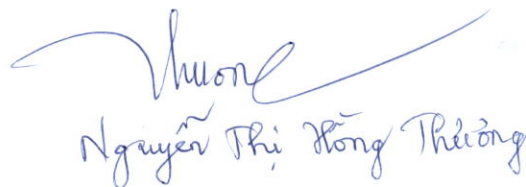 Thuong
Nguyễn Thị Hồng Thương